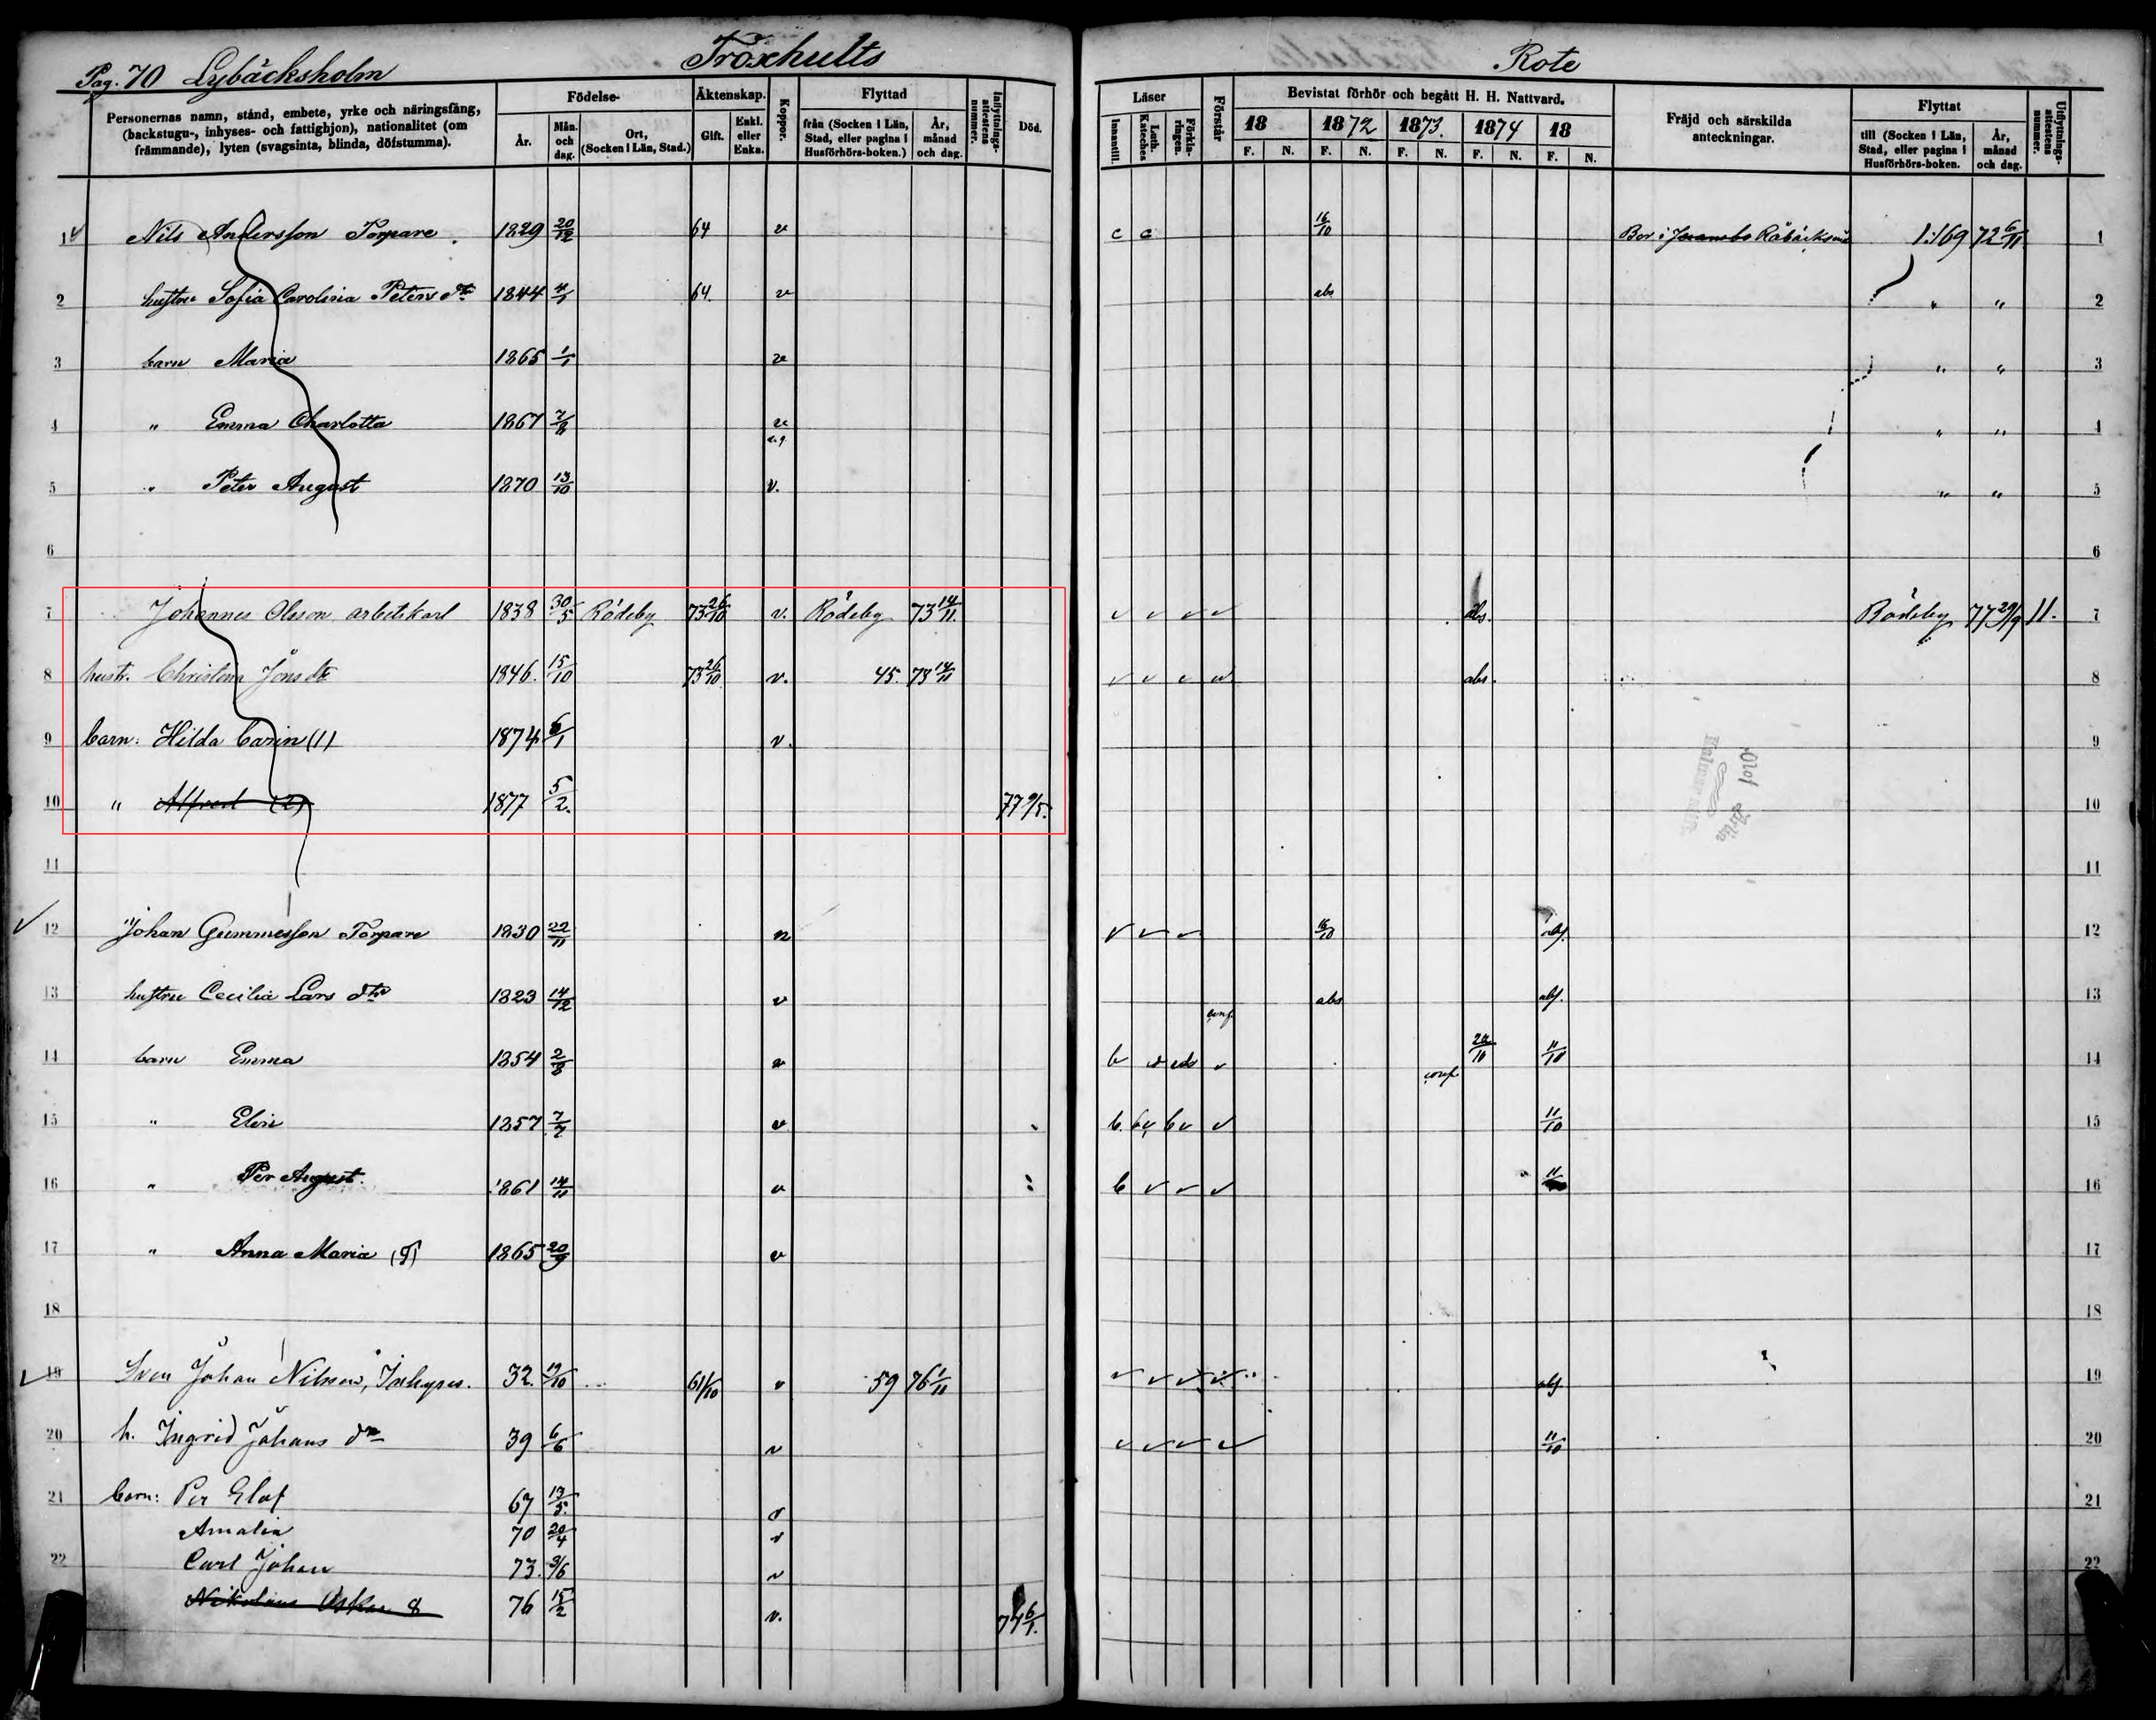 Pag. 70 Lybäcksholm Fröxhults Rote
Personernas namn, stånd, embete, yrke och näringsfång, (backstugu-, inhyses- och fattighjon), nationalitet (om främmande), lyten (svagsinta, blinda, döfstumma).
Födelse-
År.
Mån. och dag.
Ort, (Socken i Län, Stad.)
Äktenskap.
Gift.
Enkl. eller Enka.
Koppor.
Flyttad
från (Socken i Län, Stad, eller pagina i Husförhörs-boken.)
År, månad och dag.
Inflyttnings-attestens nummer.
Död.
Läser
Innantill.
Luth. Kateches
Förkla-ringen.
Förstår
Bevistat förhör och begått H. H. Nattvard.
18 1872 1873. 1874 18
F. N. F. N. F. N. F. N. F. N.
Fräjd och särskilda anteckningar.
Flyttat
till (Socken i Län, Stad, eller pagina i Husförhörs-boken.
År, månad och dag.
Utflyttnings-attestens nummer.
1 Nils Andersson Torpare. 1829 20/12 64 v c c 16/10 Bor i Råbäcksmå 1:169 72 6/11 1
2 hustru Sofia Carolina Peters dtr 1844 4/1 64 v abs " " 2
3 barn Maria 1865 1/1 v " " 3
4 " Emma Charlotta 1867 7/8 v " " 4
5 " Peter August 1870 13/10 v. " " 5
6 6
7 Johannes Olsson, arbetskarl 1838 30/5 Rödeby 73 26/10 v. Rödeby 73 14/11. abs. Rödeby 77 29/9 11. 7
8 hustr. Christina Jönsdtr 1846. 15/10 73 26/10 v. 45. 73 14/11 abs. 8
9 barn: Hilda Carin (1) 1874 6/1 v. 9
10 " Alfred (2) 1877 5/2. 77 9/5. 10
11 11
12 Johan Gummesson Torpare 1830 22/11 v 16/10 abs. 12
13 hustru Cecilia Lars dtr 1823 14/12 v abs abs. 13
14 barn Emma 1854 2/8 v b 20/10 11/10 14
15 " Elin 1857 7/7 v b. bv bv 11/10 15
16 " Per August. 1861 14/11 v b 11 16
17 " Anna Maria 1865 20/9 v 17
18 18
19 Sven Johan Nilsson, Inhyses. 32. 19/10 61/10 v 59 76 1/11 abs 19
20 h. Ingrid Johans dtr 39 6/6 v 11/10 20
21 barn: Per Elof 67 13/5. v 21
Amalia 70 20/4 v
22 Carl Johan 73. 9/6 v 22
Nikolaus Oskar 8 76 15/2 v. 77 6/1.